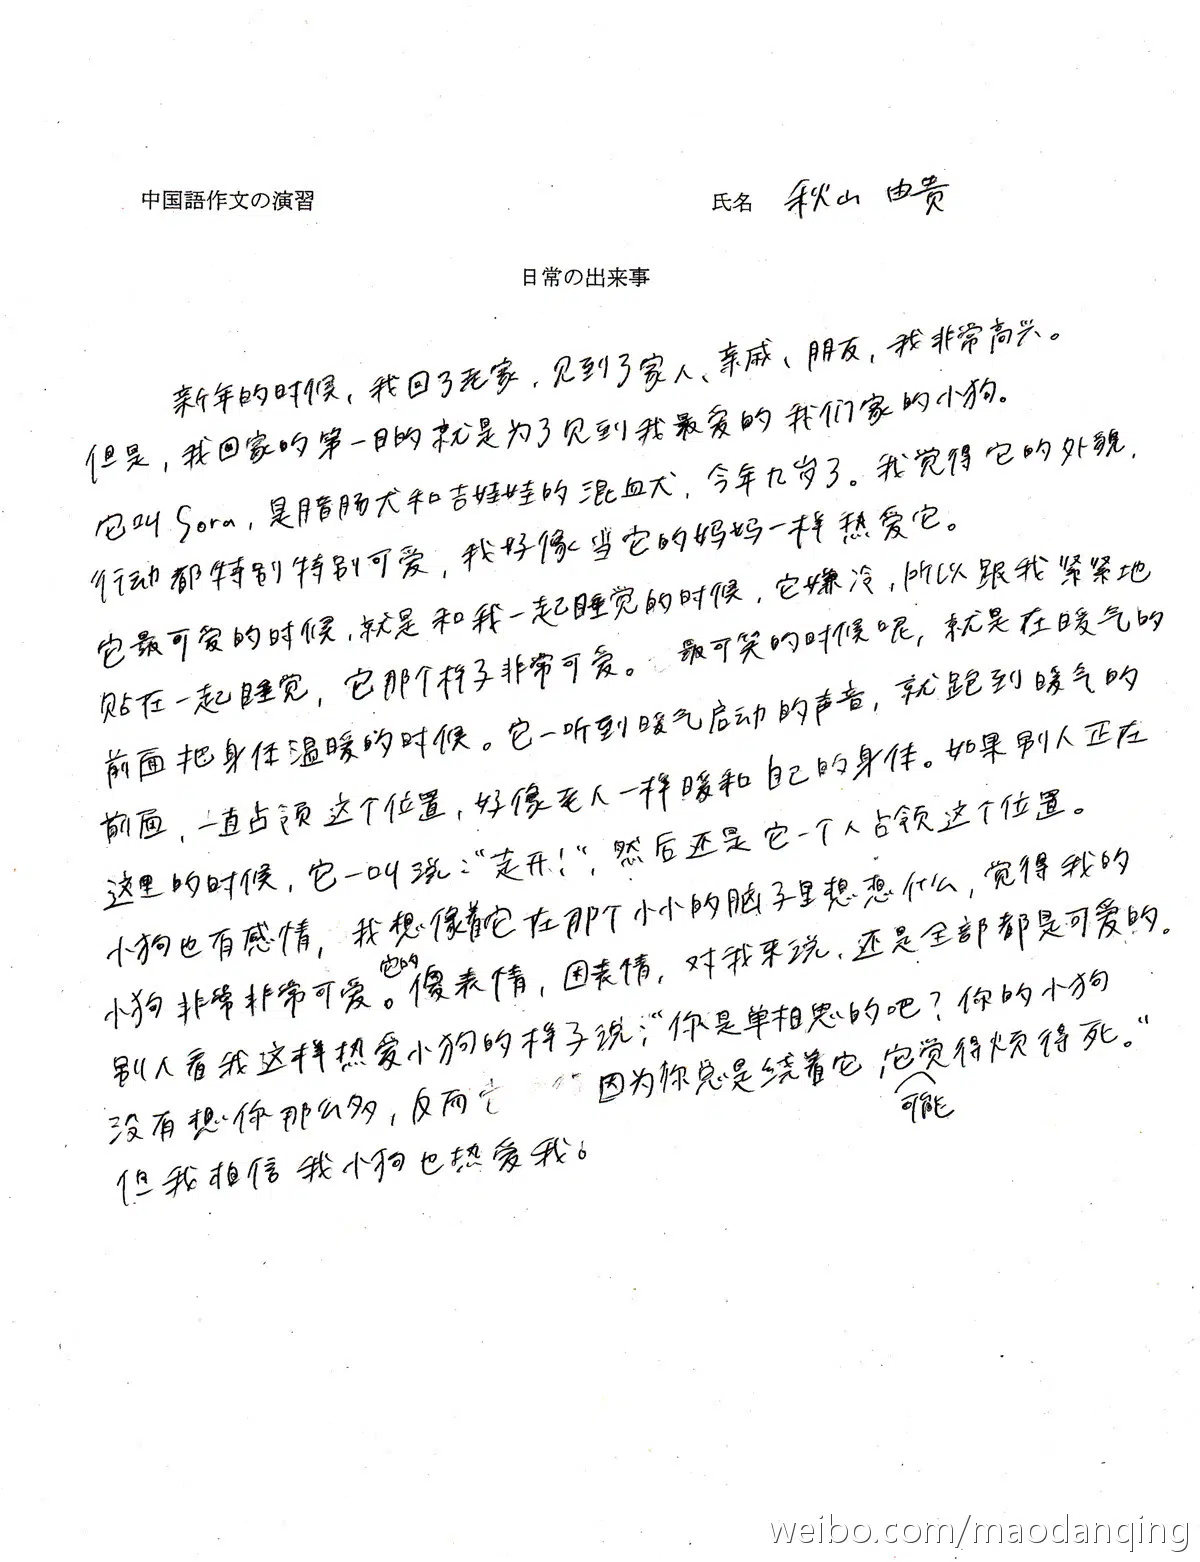 中国語作文の演習
氏名 秋山 由貴
日常の出来事
新年的时候，我回了老家，见到了家人、亲戚、朋友，我非常高兴。
但是，我回家的第一目的就是为了见到我最爱的我们家的小狗。
它叫Sora，是腊肠犬和吉娃娃的混血犬，今年九岁了。我觉得它的外貌，
行动都特别特别可爱，我好像当它的妈妈一样热爱它。
它最可爱的时候，就是和我一起睡觉的时候，它嫌冷，所以跟我紧紧地
贴在一起睡觉，它那个样子非常可爱。 最可笑的时候呢，就是在暖气的
前面把身体温暖的时候。它一听到暖气启动的声音，就跑到暖气的
前面，一直占领这个位置，好像老人一样暖和自己的身体。如果别人正在
这里的时候，它一叫说：“走开！“，然后还是它一个人占领这个位置。
小狗也有感情，我想像着它在那个小小的脑子里想想什么，觉得我的
小狗非常非常可爱。它的傻表情，困表情，对我来说，还是全部都是可爱的。
别人看我这样热爱小狗的样子说：“你是单相思的吧？你的小狗
没有想你那么多，反而它 因为你总是绕着它，它可能觉得烦得死。“
但我相信我小狗也热爱我。
weibo.com/maodanqing